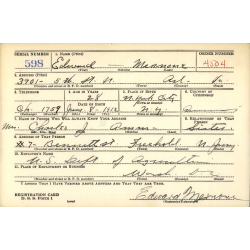 SERIAL NUMBER 1. NAME (Print) ORDER NUMBER
598 Edward — Mannone 4504
2. ADDRESS (Print)
3901 - 5th St. N. Arl. Va
3. TELEPHONE 4. AGE IN YEARS 5. PLACE OF BIRTH 6. COUNTRY OF CITIZENSHIP
28 New York City
Ch. 1759 DATE OF BIRTH
1912 N.Y.
7. NAME OF PERSON WHO WILL ALWAYS KNOW YOUR ADDRESS 8. RELATIONSHIP OF THAT PERSON
Mrs. Charles J. Sister
9. ADDRESS OF THAT PERSON
#7- Bennett St. Freehold N. Jersey
10. EMPLOYER'S NAME
U.S. Dept. of Agriculture
11. PLACE OF EMPLOYMENT OR BUSINESS
Wash D.C.
I AFFIRM THAT I HAVE VERIFIED ABOVE ANSWERS AND THAT THEY ARE TRUE.
REGISTRATION CARD
D. S. S. FORM 1
Edward Mannone